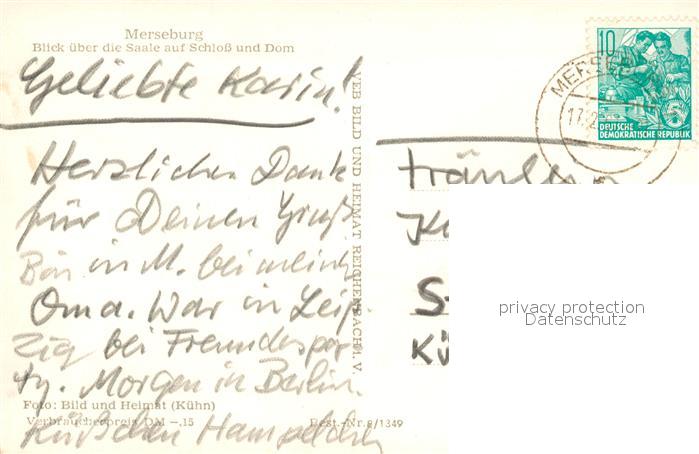 Merseburg
Blick über die Saale auf Schloß und Dom
Geliebte Karin!
Herzlichen Dank
für Deinen Gruß
Bin in M. bei meiner
Oma. War in Leip-
zig bei Freundespar-
ty. Morgen in Berlin.
Foto: Bild und Heimat (Kühn)
Verbraucherpreis DM —.15 Best.-Nr. 8/1349
Küßchen
VEB BILD UND HEIMAT REICHENBACH i. V.
10
MERSEB
17.2
5
DEUTSCHE
DEMOKRATISCHE REPUBLIK
Fräulein
K
S
Kü
privacy protection
Datenschutz